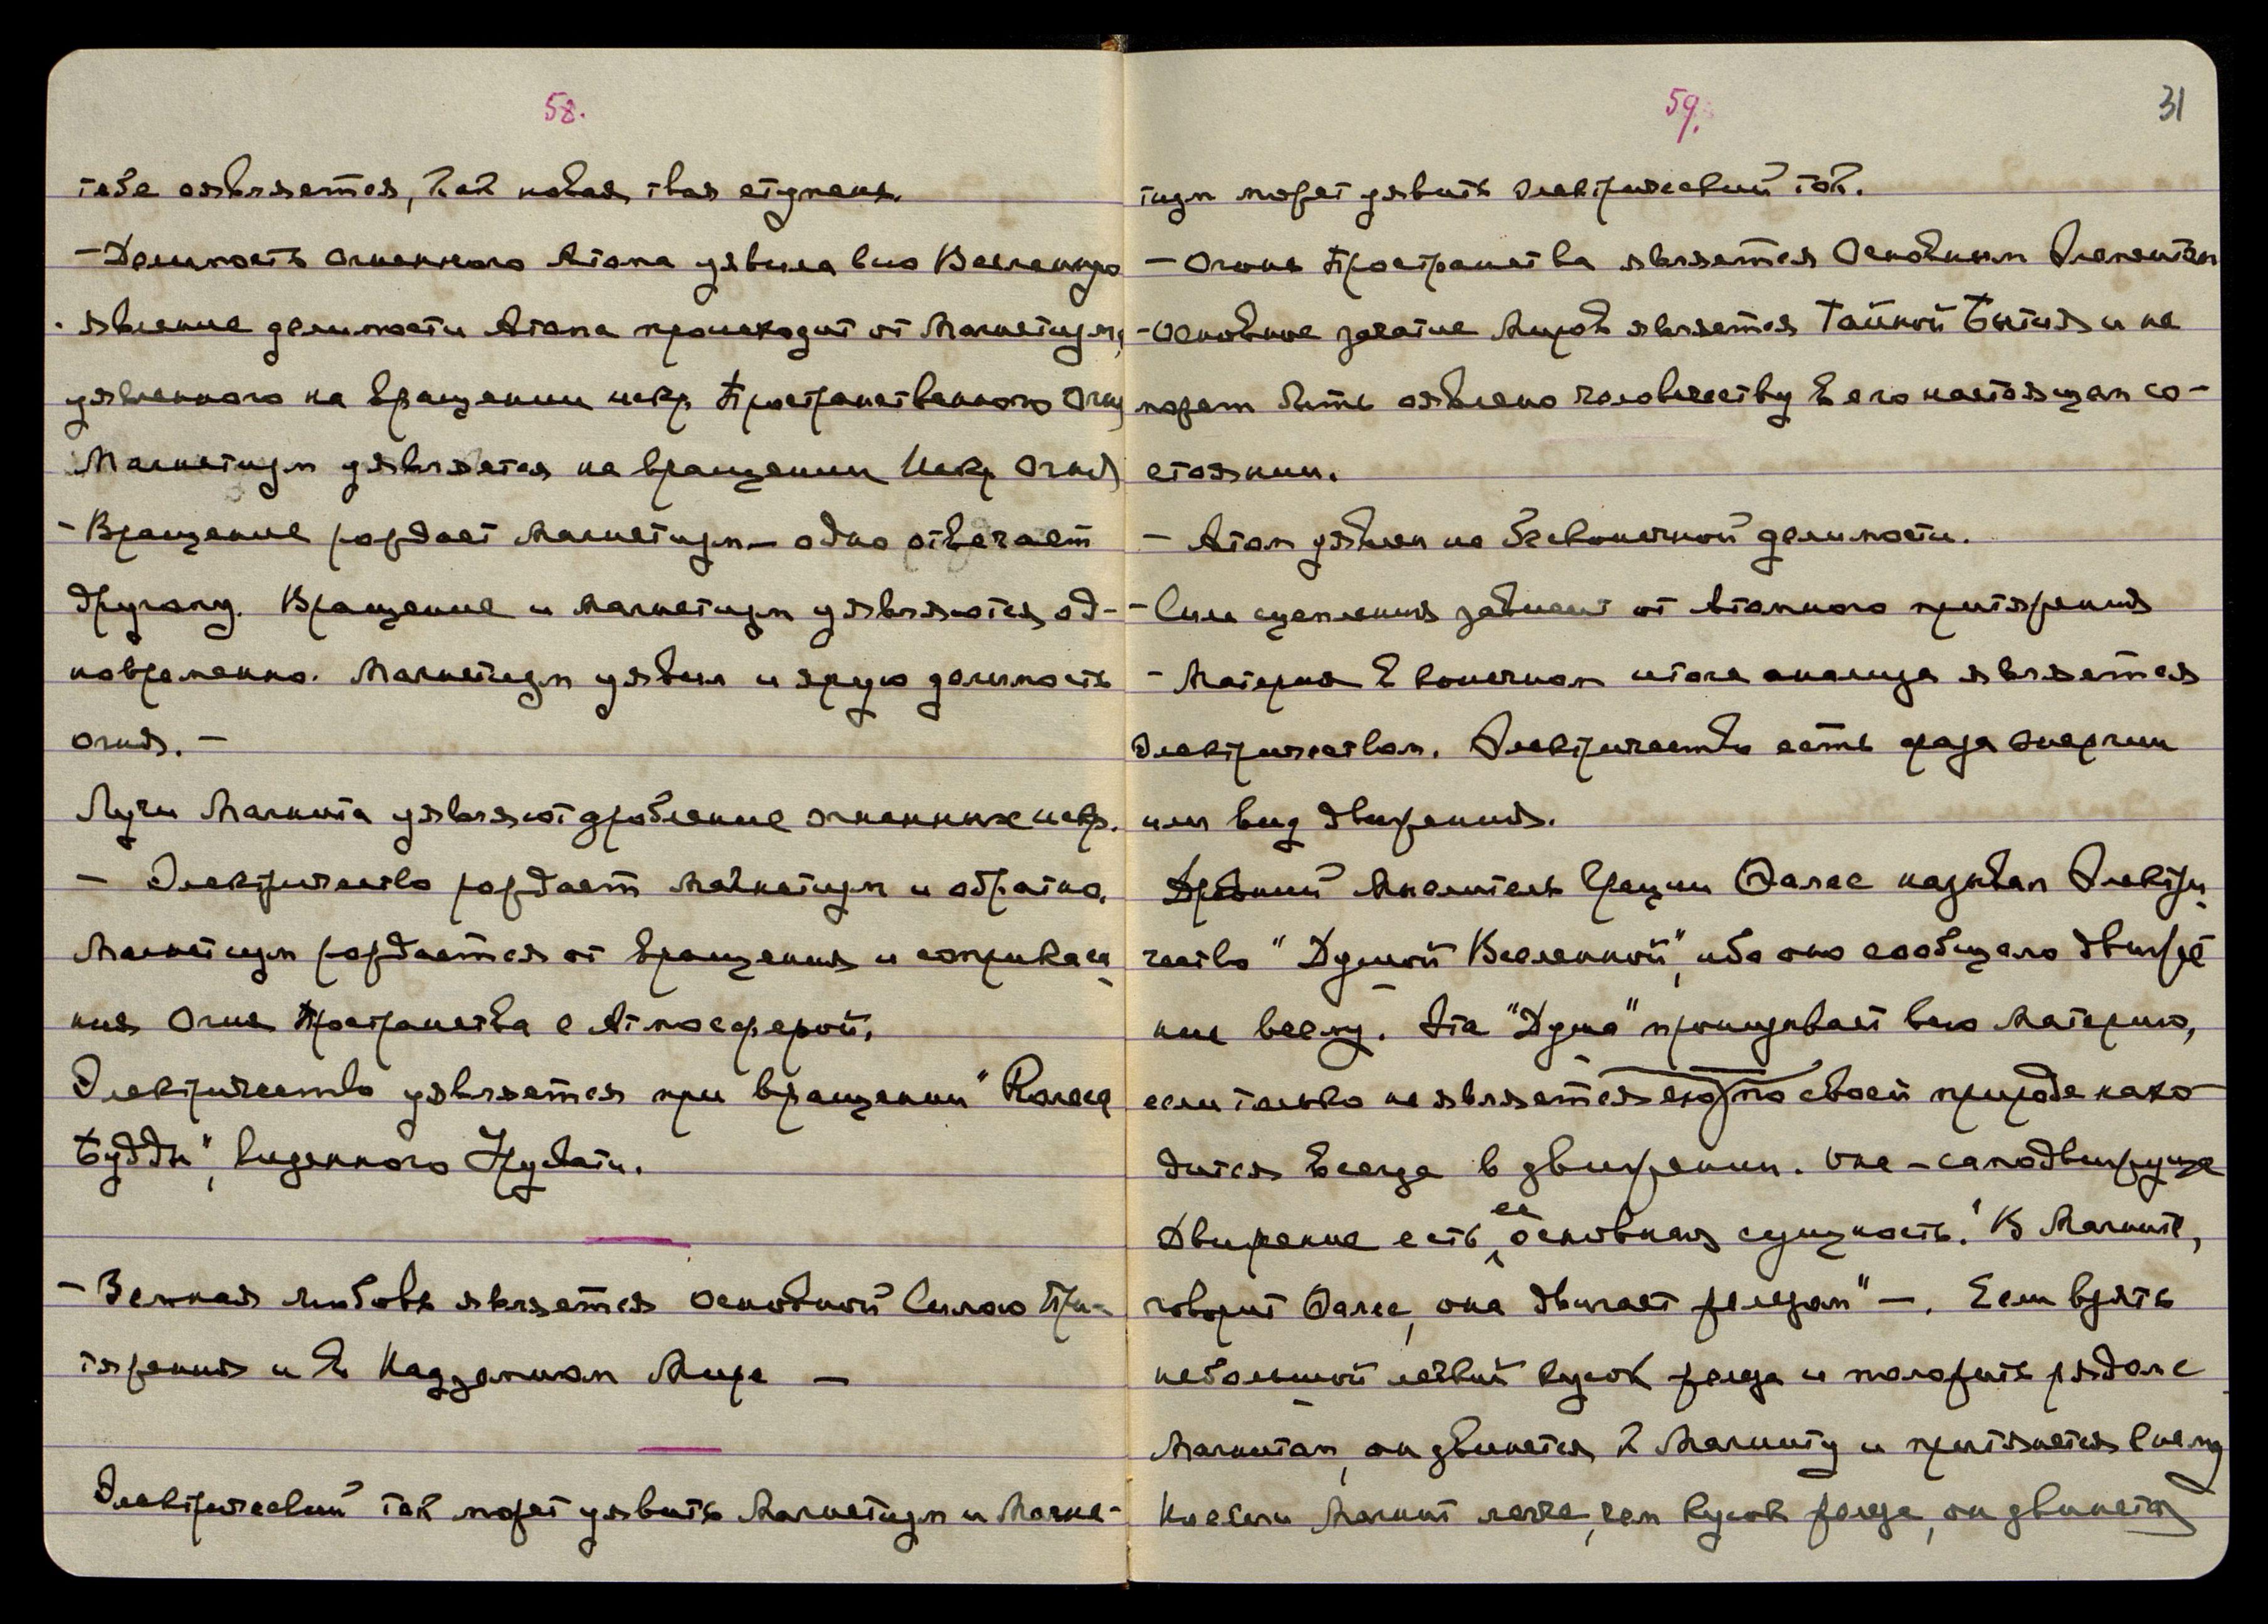 58.
тебе оявляется, как новая твоя ступень.
— Делимость огненного Атома уявила всю Вселенную
. Явление делимости Атома происходит от Магнетизма,
уявленного на вращении искр Пространственного Огня
Магнетизм уявляется на вращении Искр Огня
— Вращение рождает Магнетизм — одно отвечает
другому. Вращение и Магнетизм уявляются од-
новременно. Магнетизм уявил и ярую делимость
огня. —
Лучи Магнита уявляют дробление огненных искр.
— Электричество рождает Магнетизм и обратно.
Магнетизм рождается от вращения и соприкаса-
ния Огня Пространства с Атмосферой.
Электричество уявляется при вращении "Колеса
Будды", виденного Урусвати.
— Земная любовь является основной Силою При-
тяжения и в Надземном Мире —
Электрический ток может уявить Магнетизм и Магне-
59.
31
тизм может уявить Электрический ток.
— Огонь Пространства является Основным Элементом
— Основное зачатие Миров является Тайной Бытия и не
может быть оявлено человечеству в его настоящем со-
стоянии.
— Атом уявлен на бесконечной делимости.
— Сила сцепления зависит от Атомного притяжения
— Материя в конечном итоге анализа является
Электричеством. Электричество есть фаза энергии
или вид движения.
Древний Мыслитель Греции Фалес называл Электри-
чество "Душой Вселенной", ибо оно сообщало движе-
ние всему. Эта "Душа" пронизывает всю Материю,
если только не является ею, по своей природе нахо-
дится всегда в движении. Она — самодвижуща
Движение есть ее основная сущность. "В Магните,
говорит Фалес, она двигает железом" —. Если взять
небольшой легкий кусок железа и положить рядом с
Магнитом, он двинется к Магниту и притянется к нему
Но если Магнит легче, чем кусок железа, он двинется